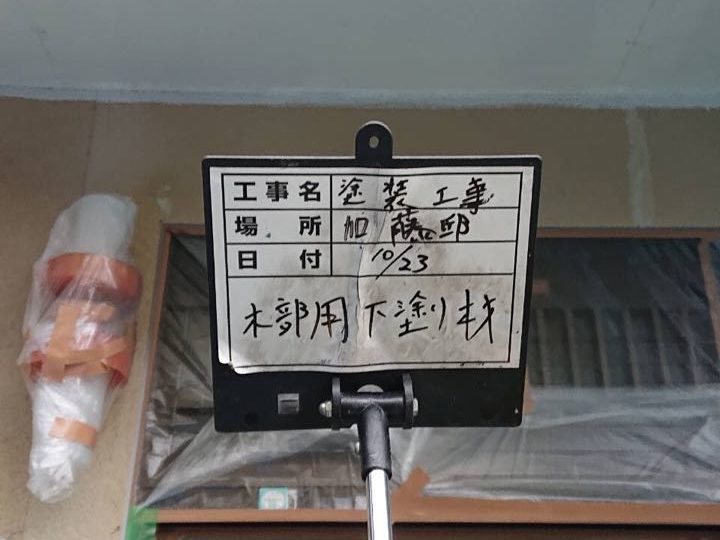 工事名 塗装工事
場所 加藤邸
日付 10/23
木部用下塗り材